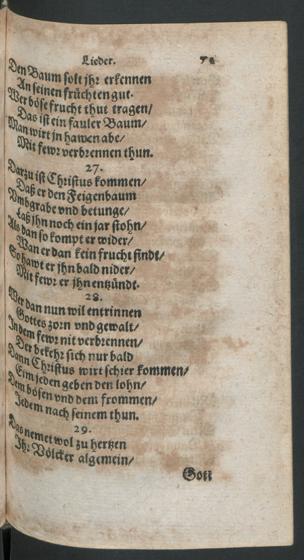 Lieder. 72
Den Baum solt jhr erkennen
An seinen früchten gut.
Wer böse frucht thut tragen/
Das ist ein fauler Baum/
Man wirt jn hawen abe/
Mit fewr verbrennen thun.
27.
Darzu ist Christus kommen/
Daß er den Feigenbaum
Vmbgrabe vnd betunge/
Laß jhn noch ein jar stohn/
Als dan so kompt er wider/
Wan er dan kein frucht findt/
So hawt er jhn bald nider/
Mit fewr er jhn entzündt.
28.
Wer dan nun wil entrinnen
Gottes zorn vnd gewalt/
In dem fewr nit verbrennen/
Der bekehr sich nur bald
Dann Christus wirt schier kommen/
Eim jeden geben den lohn/
Dem bösen vnd dem frommen/
Jedem nach seinem thun.
29.
Das nemet wol zu hertzen
Ihr Völcker algemein/
Gott